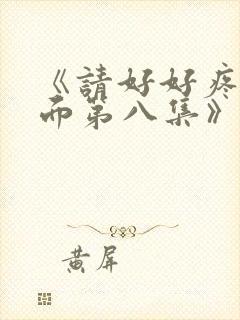 《請好好疼
而第八集》
黃屏